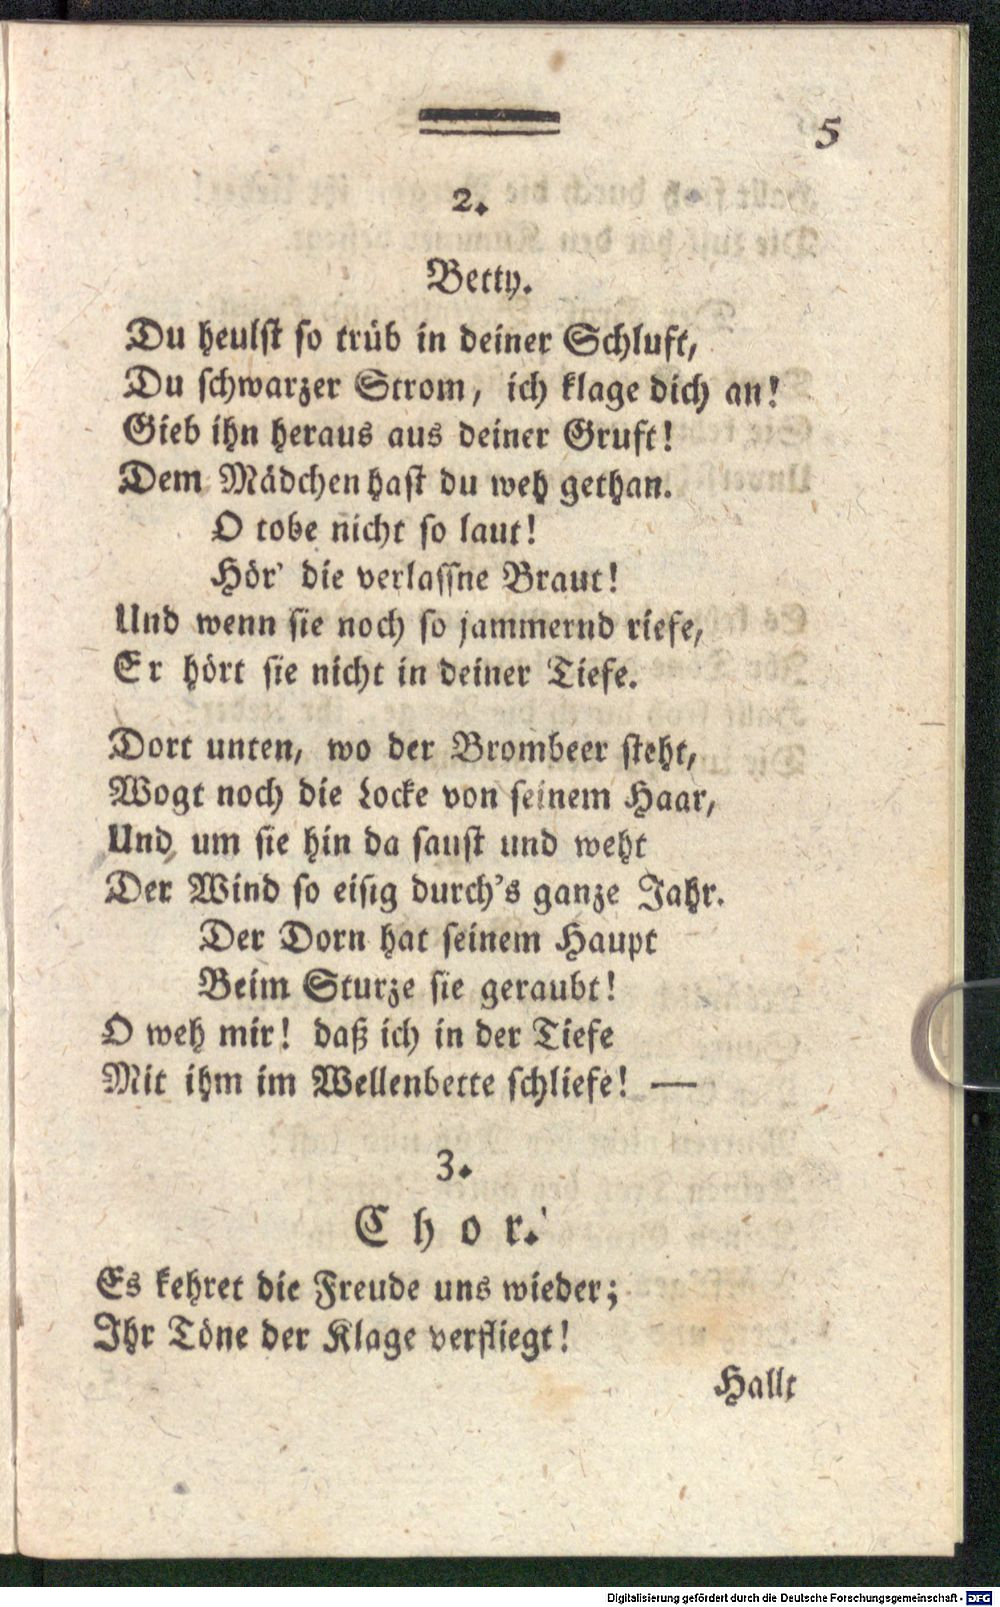 5
2.
Betty.
Du heulst so trüb in deiner Schluft,
Du schwarzer Strom, ich klage dich an!
Gieb ihn heraus aus deiner Gruft!
Dem Mädchen hast du weh gethan.
O tobe nicht so laut!
Hör' die verlassne Braut!
Und wenn sie noch so jammernd riefe,
Er hört sie nicht in deiner Tiefe.
Dort unten, wo der Brombeer steht,
Wogt noch die Locke von seinem Haar,
Und um sie hin da saust und weht
Der Wind so eisig durch's ganze Jahr.
Der Dorn hat seinem Haupt
Beim Sturze sie geraubt!
O weh mir! daß ich in der Tiefe
Mit ihm im Wellenbette schliefe! —
3.
Chor.
Es kehret die Freude uns wieder;
Ihr Töne der Klage verfliegt!
Hallt
Digitalisierung gefördert durch die Deutsche Forschungsgemeinschaft - DFG